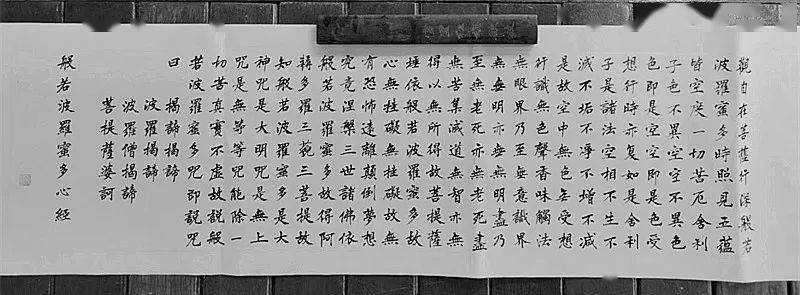 觀自在菩薩行深般若
波羅蜜多時照見五蘊
皆空度一切苦厄舍利
子色不異空空不異色
色即是空空即是色受
想行時亦复如是舍利
子是諸法空相不生不
滅不垢不凈不增不減
是故空中無色無受想
行識無色聲香味觸法
無眼界乃至無意識界
無無明亦無無明盡乃
至無老死亦無老死盡
無苦集滅道無智亦無
得以無所得故菩提薩
埵依般若波羅蜜多故
心無挂礙無挂礙故無
有恐怖遠離顛倒夢想
究竟涅槃三世諸佛依
般若波羅蜜多故得阿
耨多羅三藐三菩提故
知般若波羅蜜多是大
神咒是大明咒是無上
咒是無等等咒能除一
切苦真實不虛故說般
若波羅蜜多咒即說咒
曰 揭諦揭諦
波羅揭諦
波羅僧揭諦
菩提薩婆訶
般若波羅蜜多心經